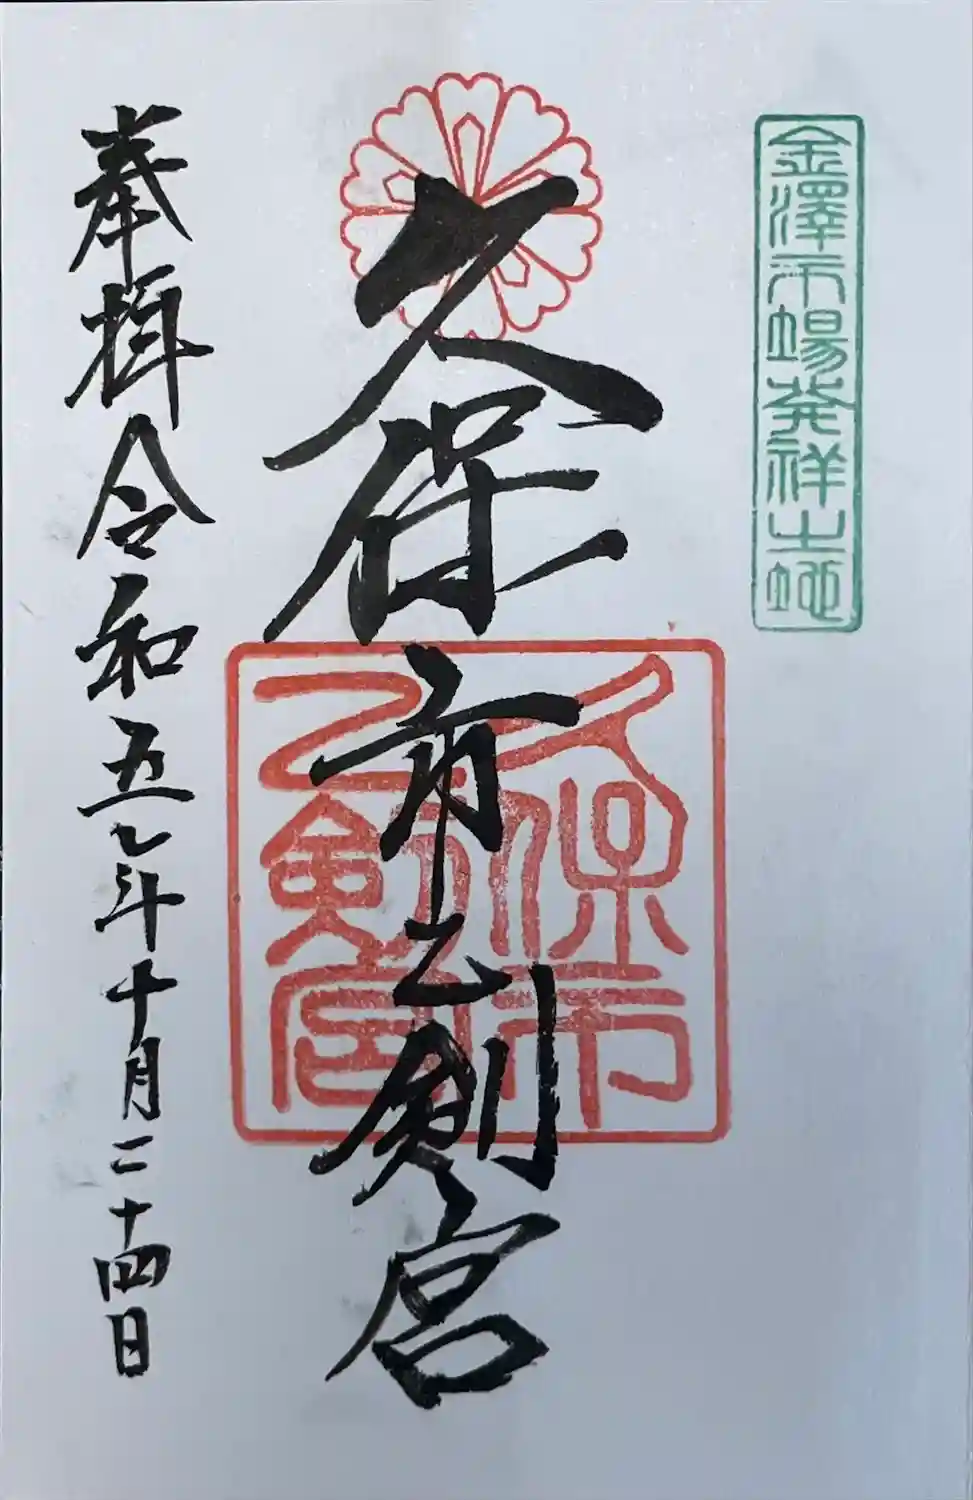 金澤市場発祥之地
久保市乙剣宮
久保市
乙剣宮
奉拝令和五年十月二十四日